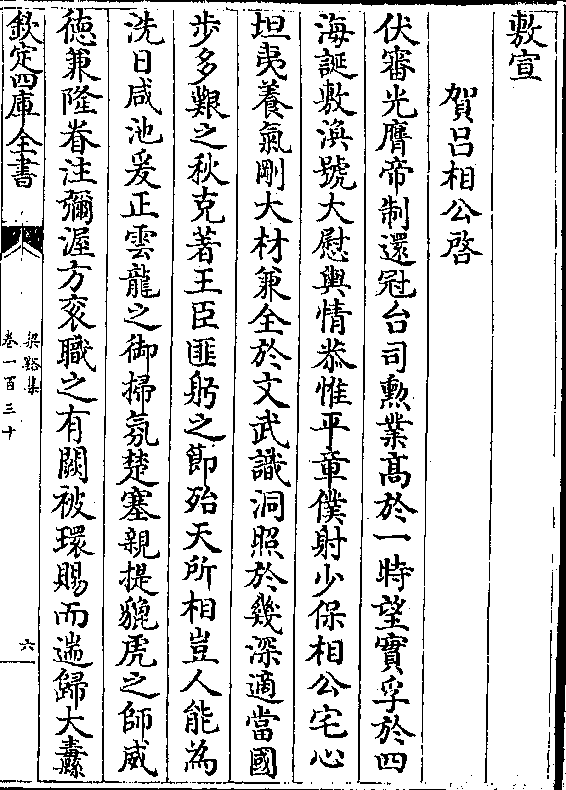 敷宣
賀呂相公啓
伏審光膺帝制還冠台司勲業髙於一時望實孚於四
海誕敷渙號大慰輿情恭惟平章僕射少保相公宅心
坦夷養氣剛大材兼全於文武識洞照於幾深適當國
歩多艱之秋克著王臣匪躬之節殆天所相豈人能為
洗日咸池爰正雲龍之御掃氛楚塞親提貔虎之師威
徳兼隆眷注彌渥方衮職之有闕被環賜而遄歸大纛
欽定四庫全書
梁谿集
卷一百三十
六